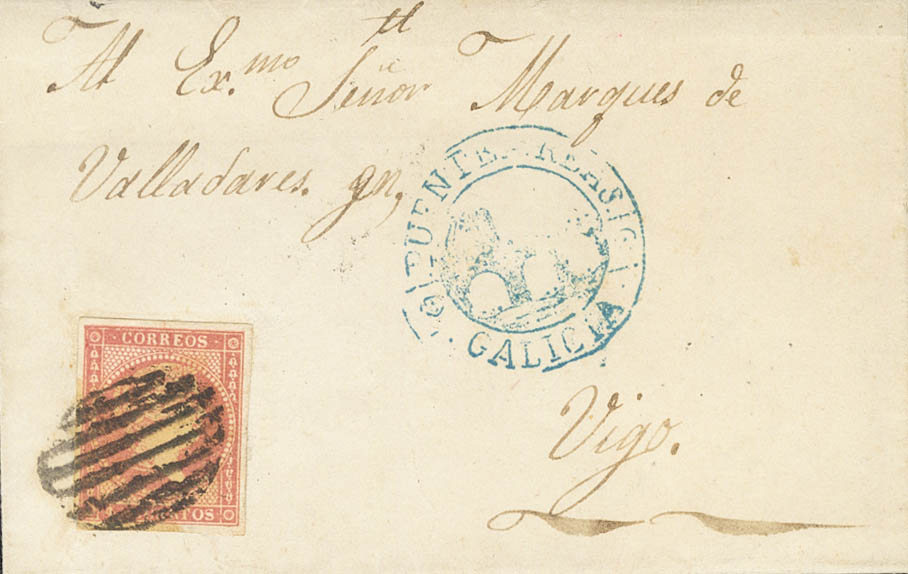 Al Ex.mo Señor Marques de
Valladares. gn,
PUENTE-AREAS.
GALICIA
CORREOS
Vigo.